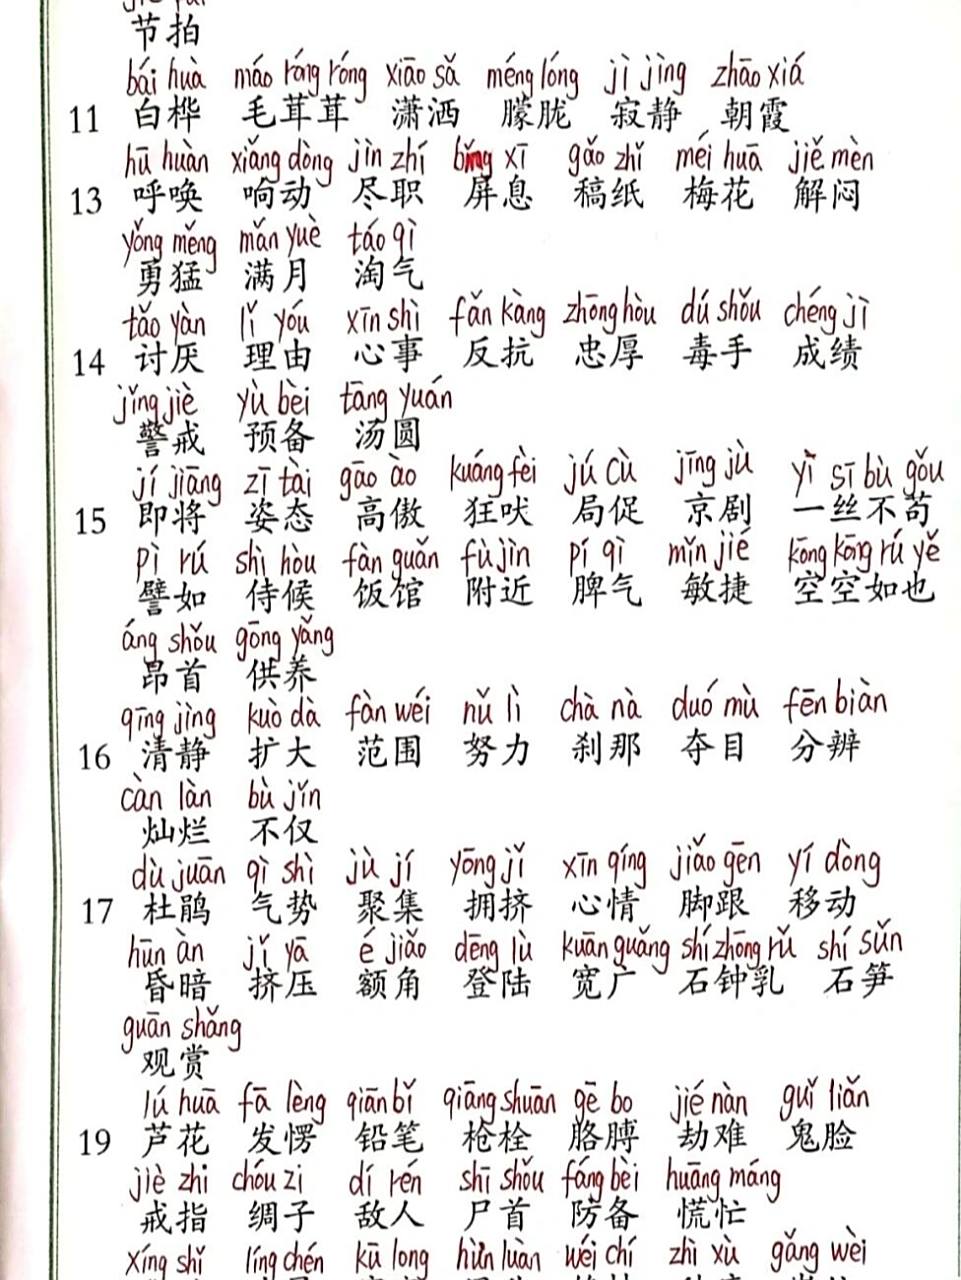 节拍
bái huà máo róng róng xiāo sǎ méng lóng jì jìng zhāo xiá
11 白桦 毛茸茸 潇洒 朦胧 寂静 朝霞
hū huàn xiǎng dòng jìn zhí bǐng xī gǎo zhǐ méi huā jiě mèn
13 呼唤 响动 尽职 屏息 稿纸 梅花 解闷
yǒng měng mǎn yuè táo qì
勇猛 满月 淘气
tǎo yàn lǐ yóu xīn shì fǎn kàng zhōng hòu dú shǒu chéng jì
14 讨厌 理由 心事 反抗 忠厚 毒手 成绩
jǐng jiè yù bèi tāng yuán
警戒 预备 汤圆
jí jiāng zī tài gāo ào kuáng fèi jú cù jīng jù yì sī bù gǒu
15 即将 姿态 高傲 狂吠 局促 京剧 一丝不苟
pì rú shì hòu fàn guǎn fù jìn pí qì mǐn jié kōng kōng rú yě
譬如 侍候 饭馆 附近 脾气 敏捷 空空如也
áng shǒu gōng yǎng
昂首 供养
qīng jìng kuò dà fàn wéi nǔ lì chà nà duó mù fēn biàn
16 清静 扩大 范围 努力 刹那 夺目 分辨
càn làn bù jǐn
灿烂 不仅
dù juān qì shì jù jí yōng jǐ xīn qíng jiǎo gēn yí dòng
17 杜鹃 气势 聚集 拥挤 心情 脚跟 移动
hūn àn jǐ yā é jiǎo dēng lù kuān guǎng shí zhōng rǔ shí sǔn
昏暗 挤压 额角 登陆 宽广 石钟乳 石笋
guān shǎng
观赏
lú huā fā lèng qiān bǐ qiāng shuān gē bo jié nàn guǐ liǎn
19 芦花 发愣 铅笔 枪栓 胳膊 劫难 鬼脸
jiè zhi chóu zi dí rén shī shǒu fáng bèi huāng máng
戒指 绸子 敌人 尸首 防备 慌忙
xíng shǐ líng chén kū long hùn luàn wéi chí zhì xù gǎng wèi